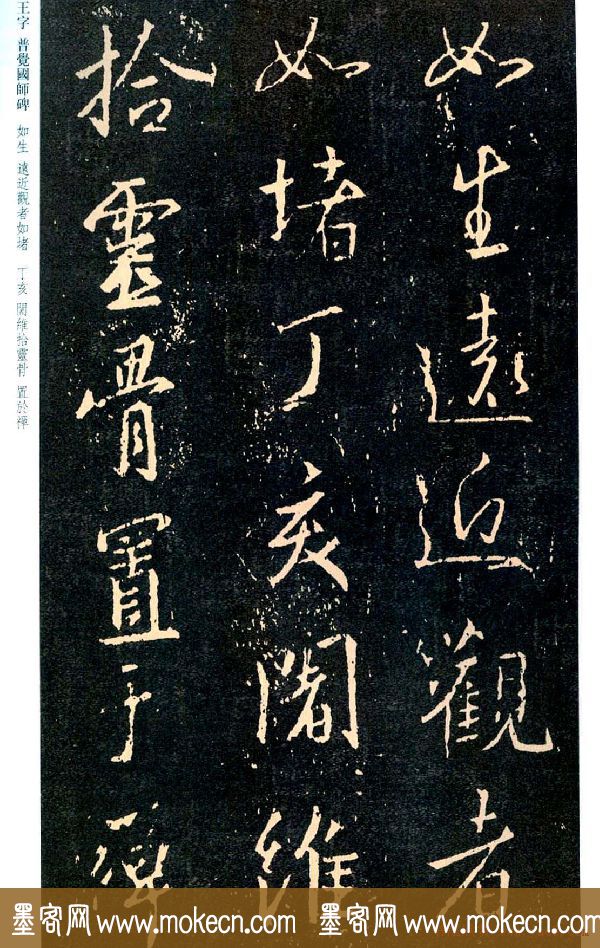 如生遠近觀者
如堵丁亥闍維
拾靈骨置于禪
王字 普覺國師碑 如生 遠近觀者如堵 丁亥 闍維拾靈骨 置於禪
墨客网 www.mokecn.com 墨客网 www.mokecn.com